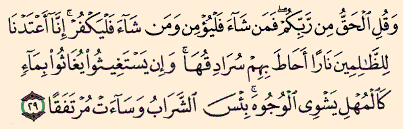 وَقُلِ ٱلْحَقُّ مِن رَّبِّكُمْ ۖ فَمَن شَآءَ فَلْيُؤْمِن وَمَن شَآءَ فَلْيَكْفُرْ ۚ إِنَّآ أَعْتَدْنَا
لِلظَّٰلِمِينَ نَارًا أَحَاطَ بِهِمْ سُرَادِقُهَا ۚ وَإِن يَسْتَغِيثُوا۟ يُغَاثُوا۟ بِمَآءٍ
كَٱلْمُهْلِ يَشْوِى ٱلْوُجُوهَ ۚ بِئْسَ ٱلشَّرَابُ وَسَآءَتْ مُرْتَفَقًا ٢٩